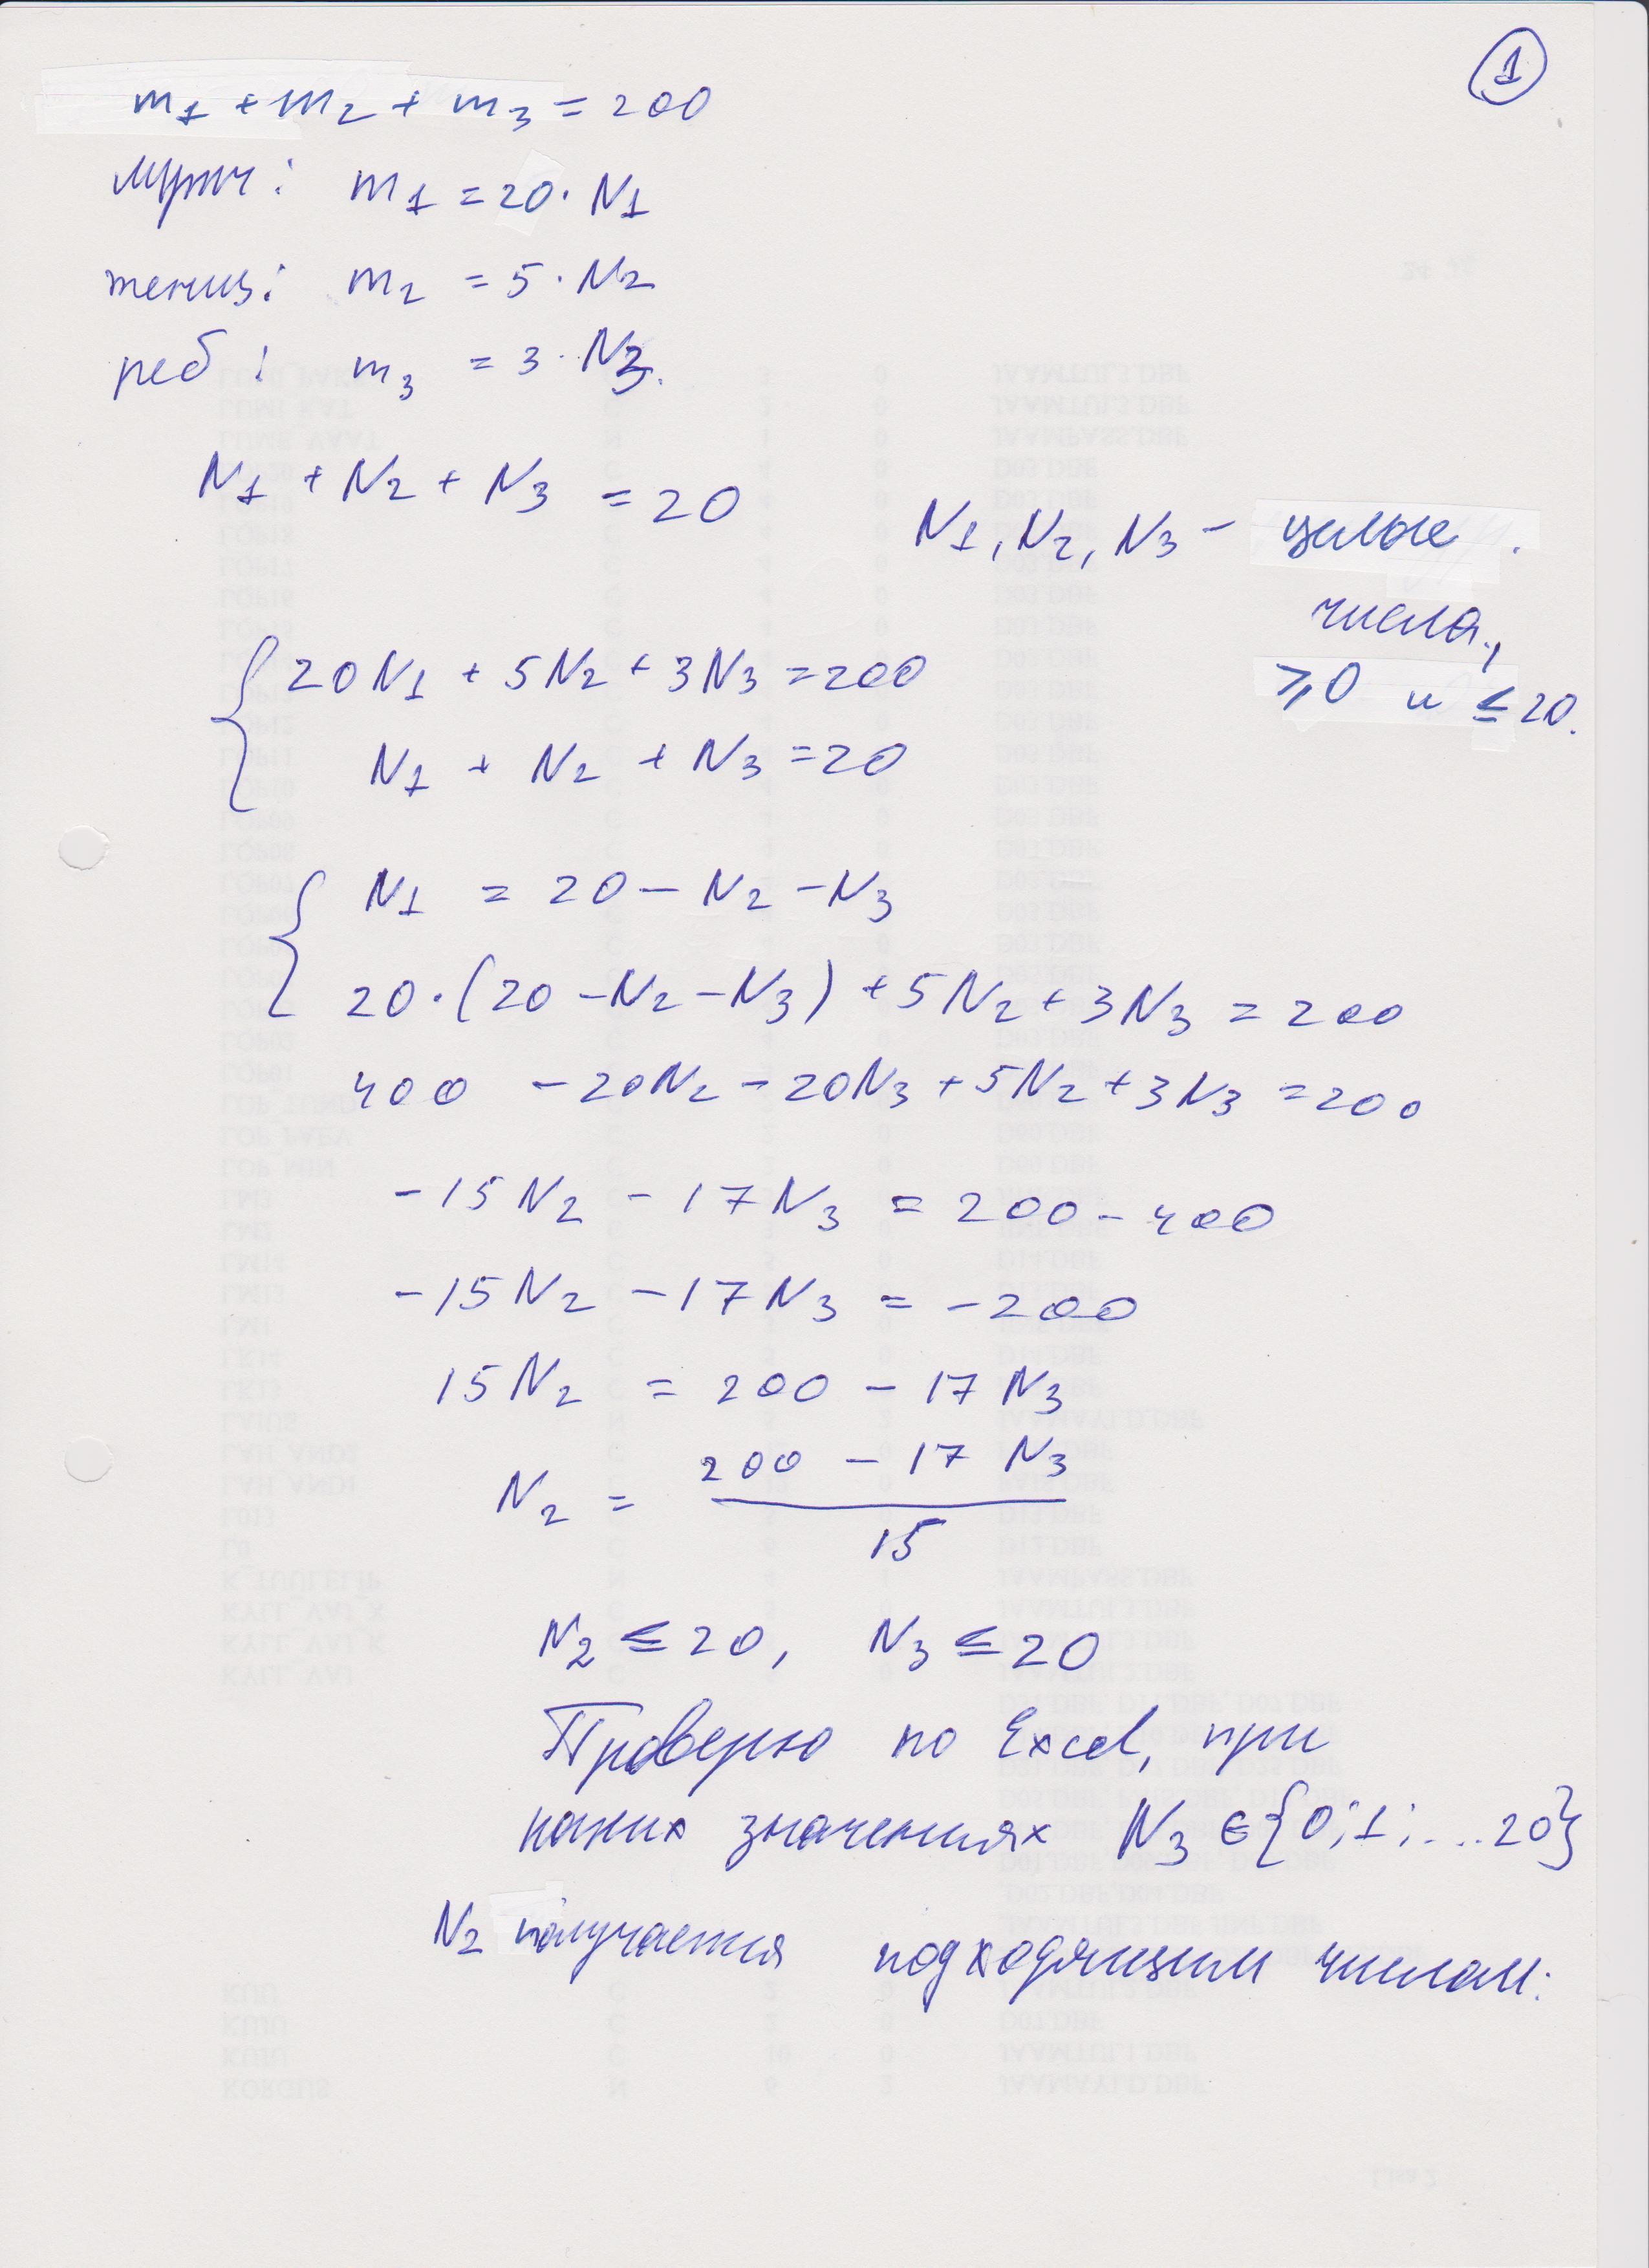 1
m1 + m2 + m3 = 200
мужч: m1 = 20 · N1
женщ: m2 = 5 · N2
реб: m3 = 3 · N3.
N1 + N2 + N3 = 20
N1, N2, N3 - целые
числа,
⩾0 и ≤ 20.
20N1 + 5N2 + 3N3 = 200
N1 + N2 + N3 = 20
N1 = 20 - N2 - N3
20 · (20 - N2 - N3) + 5N2 + 3N3 = 200
400 - 20N2 - 20N3 + 5N2 + 3N3 = 200
-15N2 - 17N3 = 200 - 400
-15N2 - 17N3 = -200
15N2 = 200 - 17N3
N2 = (200 - 17N3) / 15
N2 ≤ 20, N3 ≤ 20
Проверю по Excel, при
каких значениях N3 ∈ {0; 1; ... 20}
N2 получается подходящим числом: